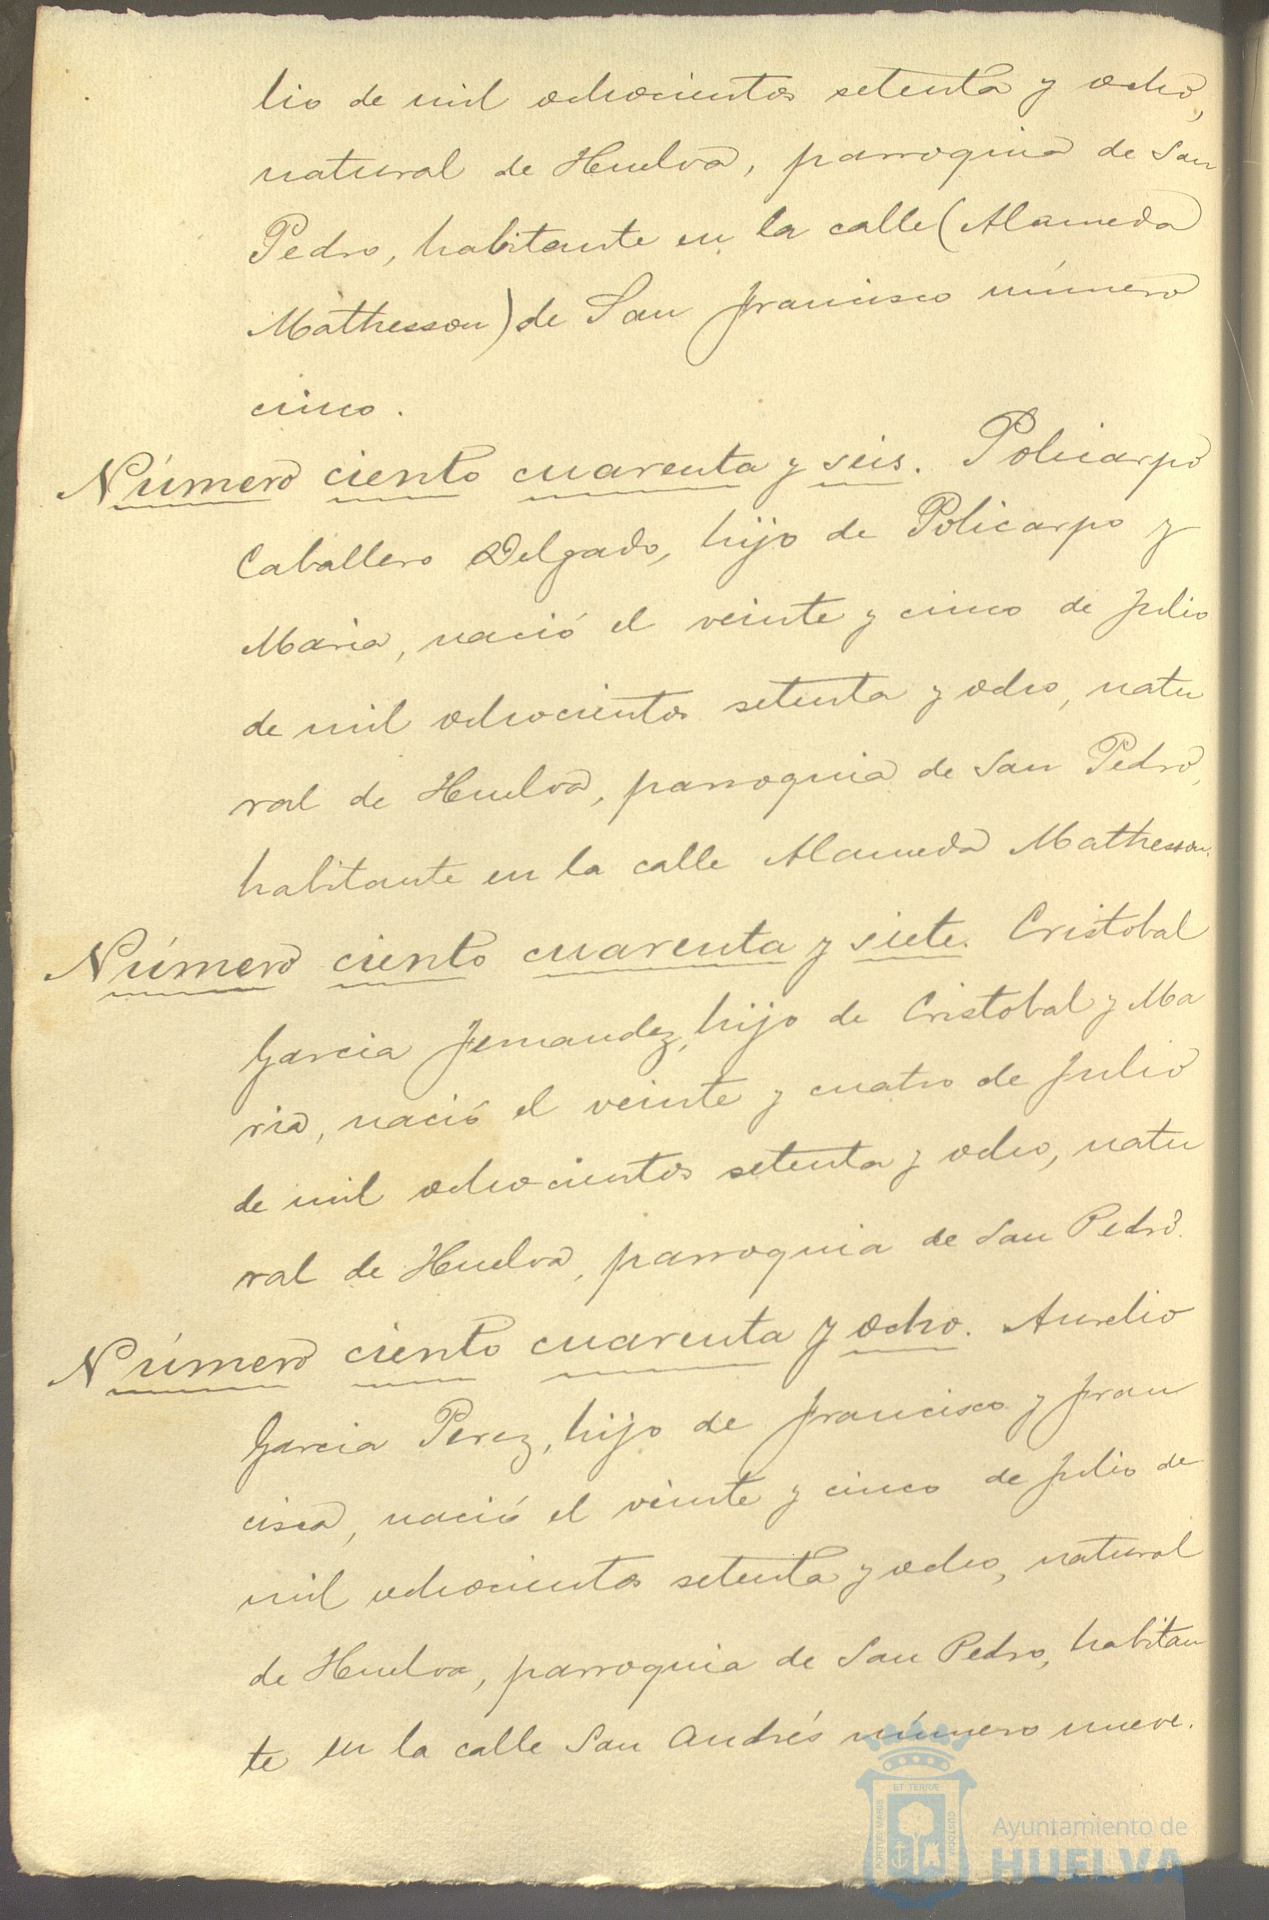 lio de mil ochocientos setenta y ocho,
natural de Huelva, parroquia de San
Pedro, habitante en la calle (Alameda
Mathesson) de San Francisco número
cinco.
Número ciento cuarenta y seis. Policarpo
Caballero Delgado, hijo de Policarpo y
Maria, nació el veinte y cinco de Julio
de mil ochocientos setenta y ocho, natu
ral de Huelva, parroquia de San Pedro,
habitante en la calle Alameda Mathesson.
Número ciento cuarenta y siete. Cristobal
Garcia Fernandez, hijo de Cristobal y Ma
ria, nació el veinte y cuatro de Julio
de mil ochocientos setenta y ocho, natu
ral de Huelva, parroquia de San Pedro.
Número ciento cuarenta y ocho. Aurelio
Garcia Perez, hijo de Francisco y Fran
cisca, nació el veinte y cinco de Julio de
mil ochocientos setenta y ocho, natural
de Huelva, parroquia de San Pedro, habitan
te en la calle San Andrés número nueve.
PORTUS MARIS ET TERRÆ CUSTODIA
Ayuntamiento de
HUELVA